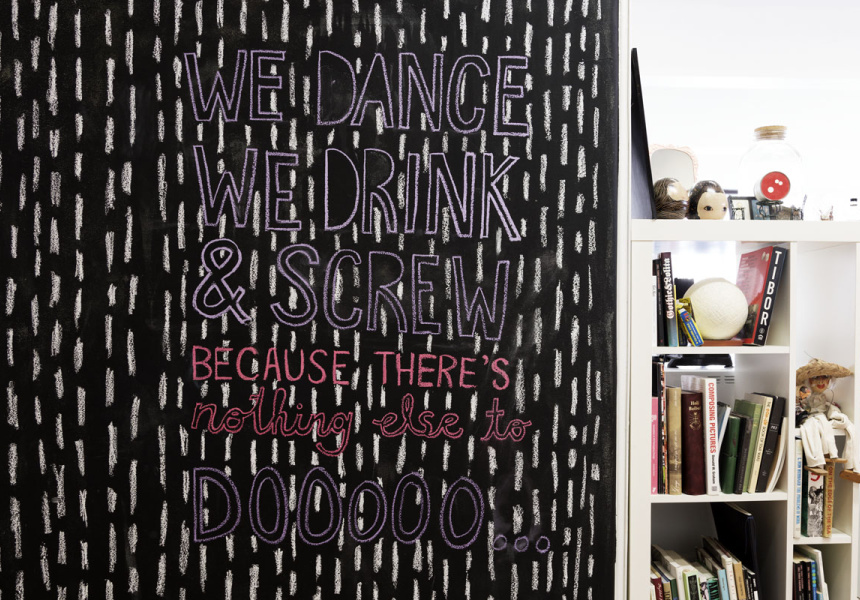 WE DANCE
WE DRINK
& SCREW
BECAUSE THERE'S
nothing else to
DOOOOO...
Gothic & Lolita
TIBOR
COMPOSING PICTURES